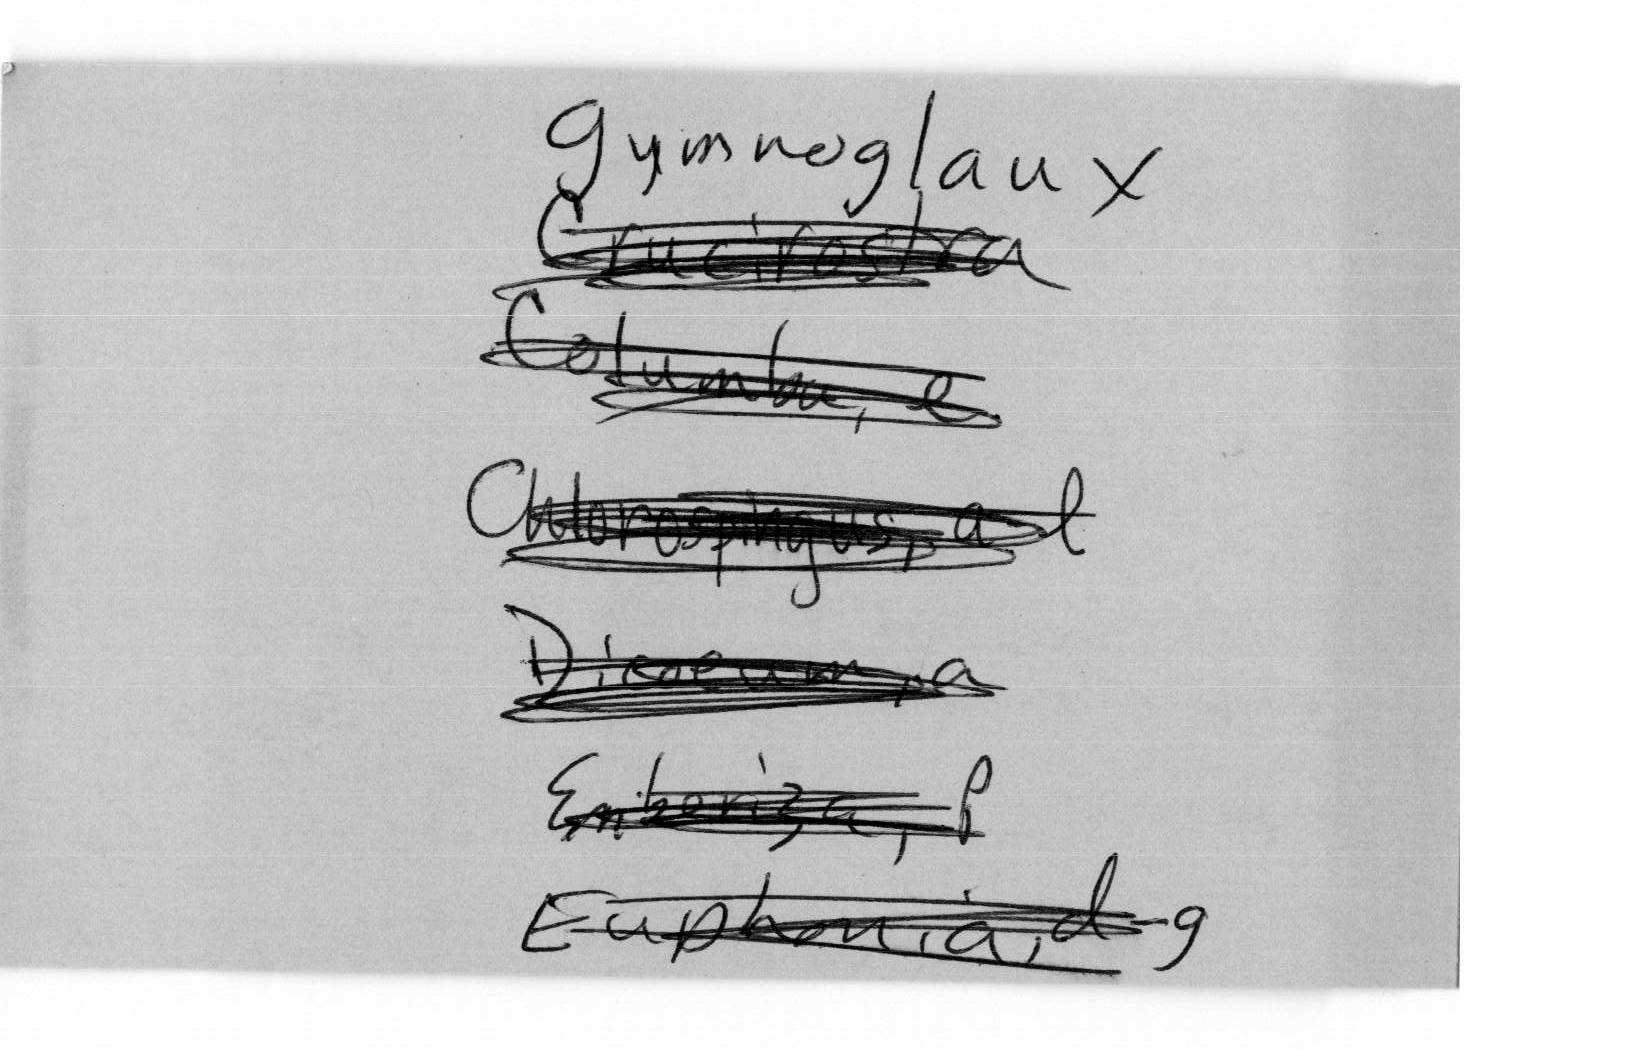 Gymnoglaux
Crucirostra
Columba, e
Chlorospingus, a l
Dicaeum, a
Emberiza, p
Euphonia, d-g